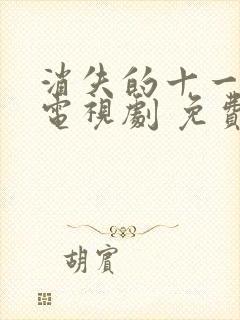 消失的十一
電視劇 免費
胡賓